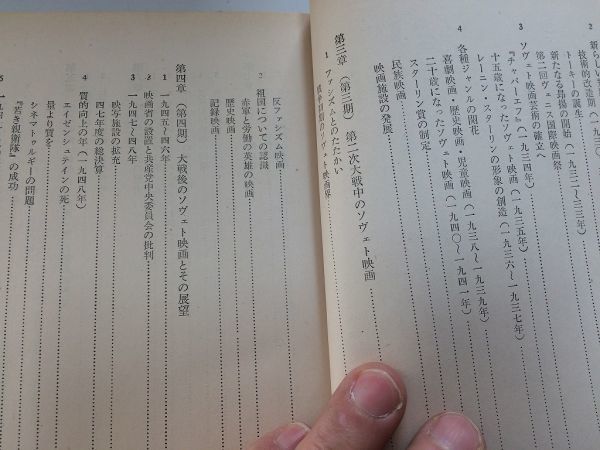 技術的改造期
トーキーの誕生
新たなる昂揚の開始（一九三二〜三三年）
第二回ヴェニス国際映画祭
3 ソヴェト映画芸術の確立へ
『チャパーエフ』（一九三四年）
十五歳になったソヴェト映画（一九三五年）
レーニン・スターリンの形象の創造（一九三六〜一九三七年）
4 各種ジャンルの開花
喜劇映画・歴史映画・児童映画（一九三八〜一九三九年）
二十歳になったソヴェト映画（一九四〇〜一九四一年）
スターリン賞の制定
民族映画
映画施設の発展
第三章（第三期）第二次大戦中のソヴェト映画
1 ファシズムとのたたかい
戦争初期のソヴェト映画界
反ファシズム映画
2 祖国についての認識
赤軍と労働の英雄の映画
歴史映画
記録映画
第四章（第四期）大戦後のソヴェト映画とその展望
1 一九四五〜四六年
2 映画省の設置と共産党中央委員会の批判
3 一九四七〜四八年
映写施設の拡充
四七年度の総決算
4 質的向上の年（一九四八年）
エイゼンシュテインの死
量より質を
シネマトゥルギーの問題
『若き親衛隊』の成功
5